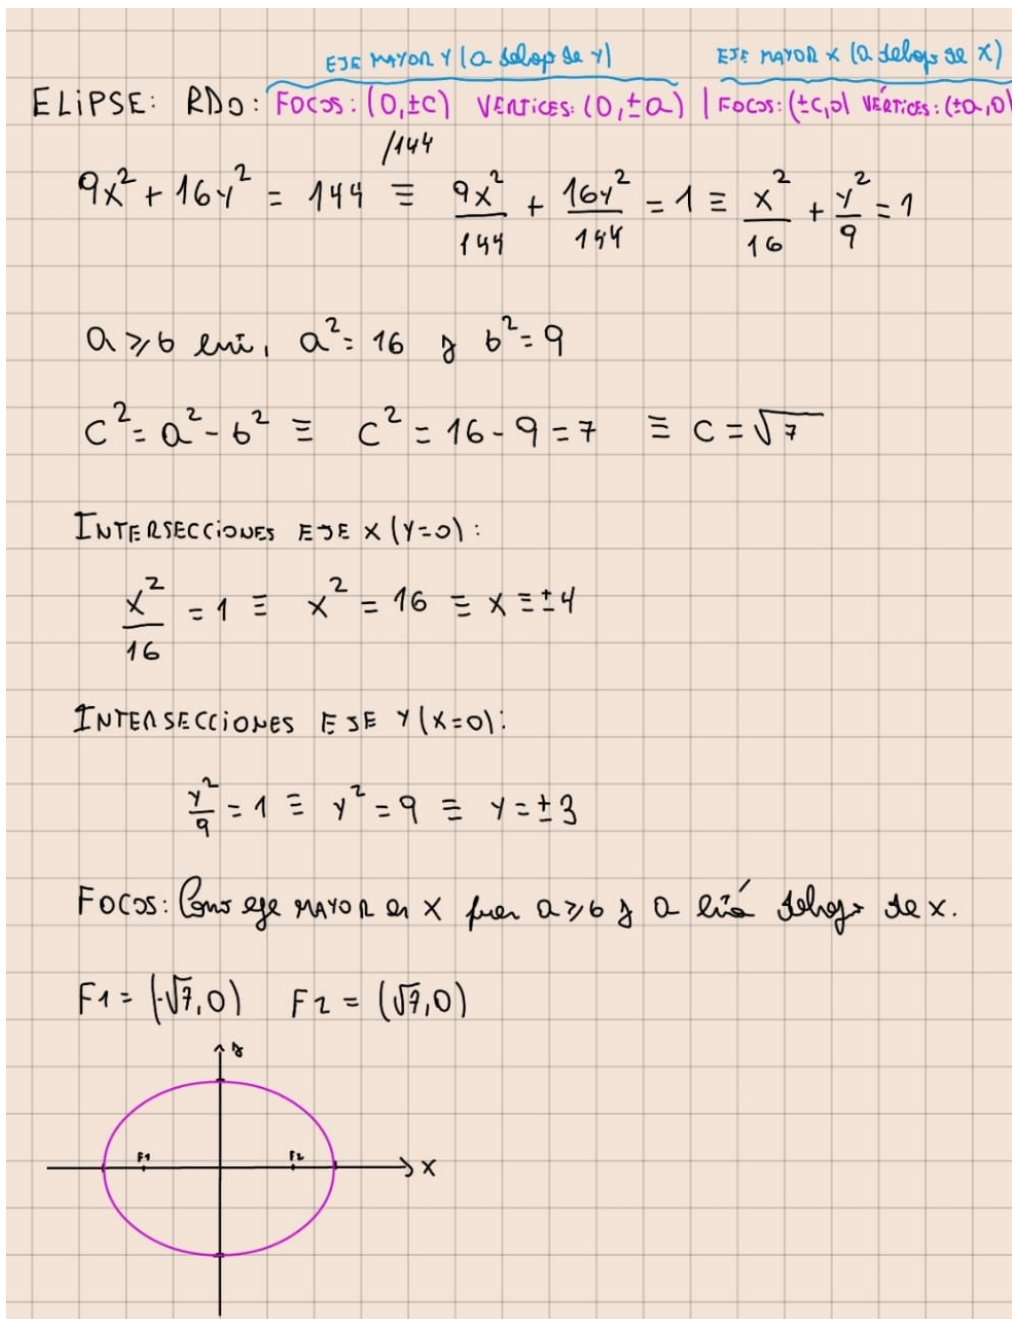 EJE MAYOR Y (a debajo de Y) EJE MAYOR X (a debajo de X)
ELIPSE: RDO: FOCOS: (0,±C) VERTICES: (0,±a) | FOCOS: (±C,0) VÉRTICES: (±a,0)
/144
9x² + 16y² = 144 ≡ 9x²/144 + 16y²/144 = 1 ≡ x²/16 + y²/9 = 1
a ≥ b a² = 16 y b² = 9
C² = a² - b² ≡ C² = 16 - 9 = 7 ≡ C = √7
INTERSECCIONES EJE X (Y=0):
x²/16 = 1 ≡ x² = 16 ≡ x = ±4
INTERSECCIONES EJE Y (X=0):
y²/9 = 1 ≡ y² = 9 ≡ y = ±3
FOCOS: Como eje MAYOR en X pues a ≥ b y a está debajo de x.
F1 = (-√7,0) F2 = (√7,0)
y
F1 F2
X